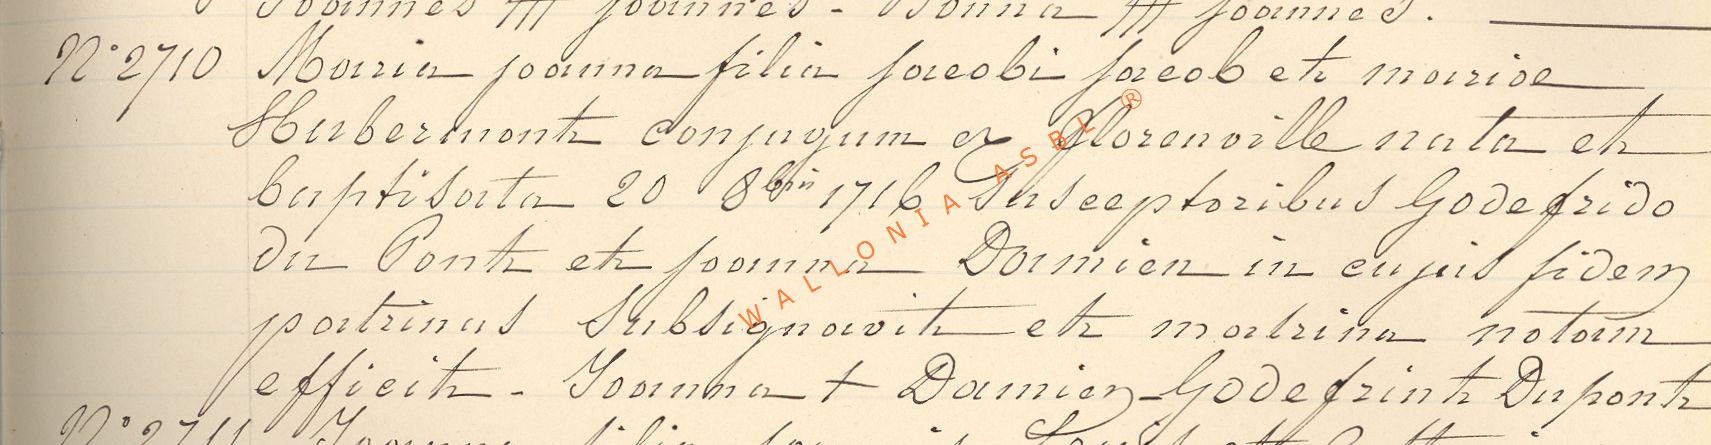 Joannes ttt joannes - Joanna ttt joannes.
N° 2710 Maria joanna filia jacobi jacob et mariae
Hubermont conjugum ex florenville nata et
baptisata 20 8bris 1716 Susceptoribus Godefrido
du Pont et joanna Damien in cujus fidem
patrinus Subsignavit et matrina notam
efficit - Joanna + Damien - Godefrint Dupont
N° 2711 Joanna filia
WALLONIA ASBL ®